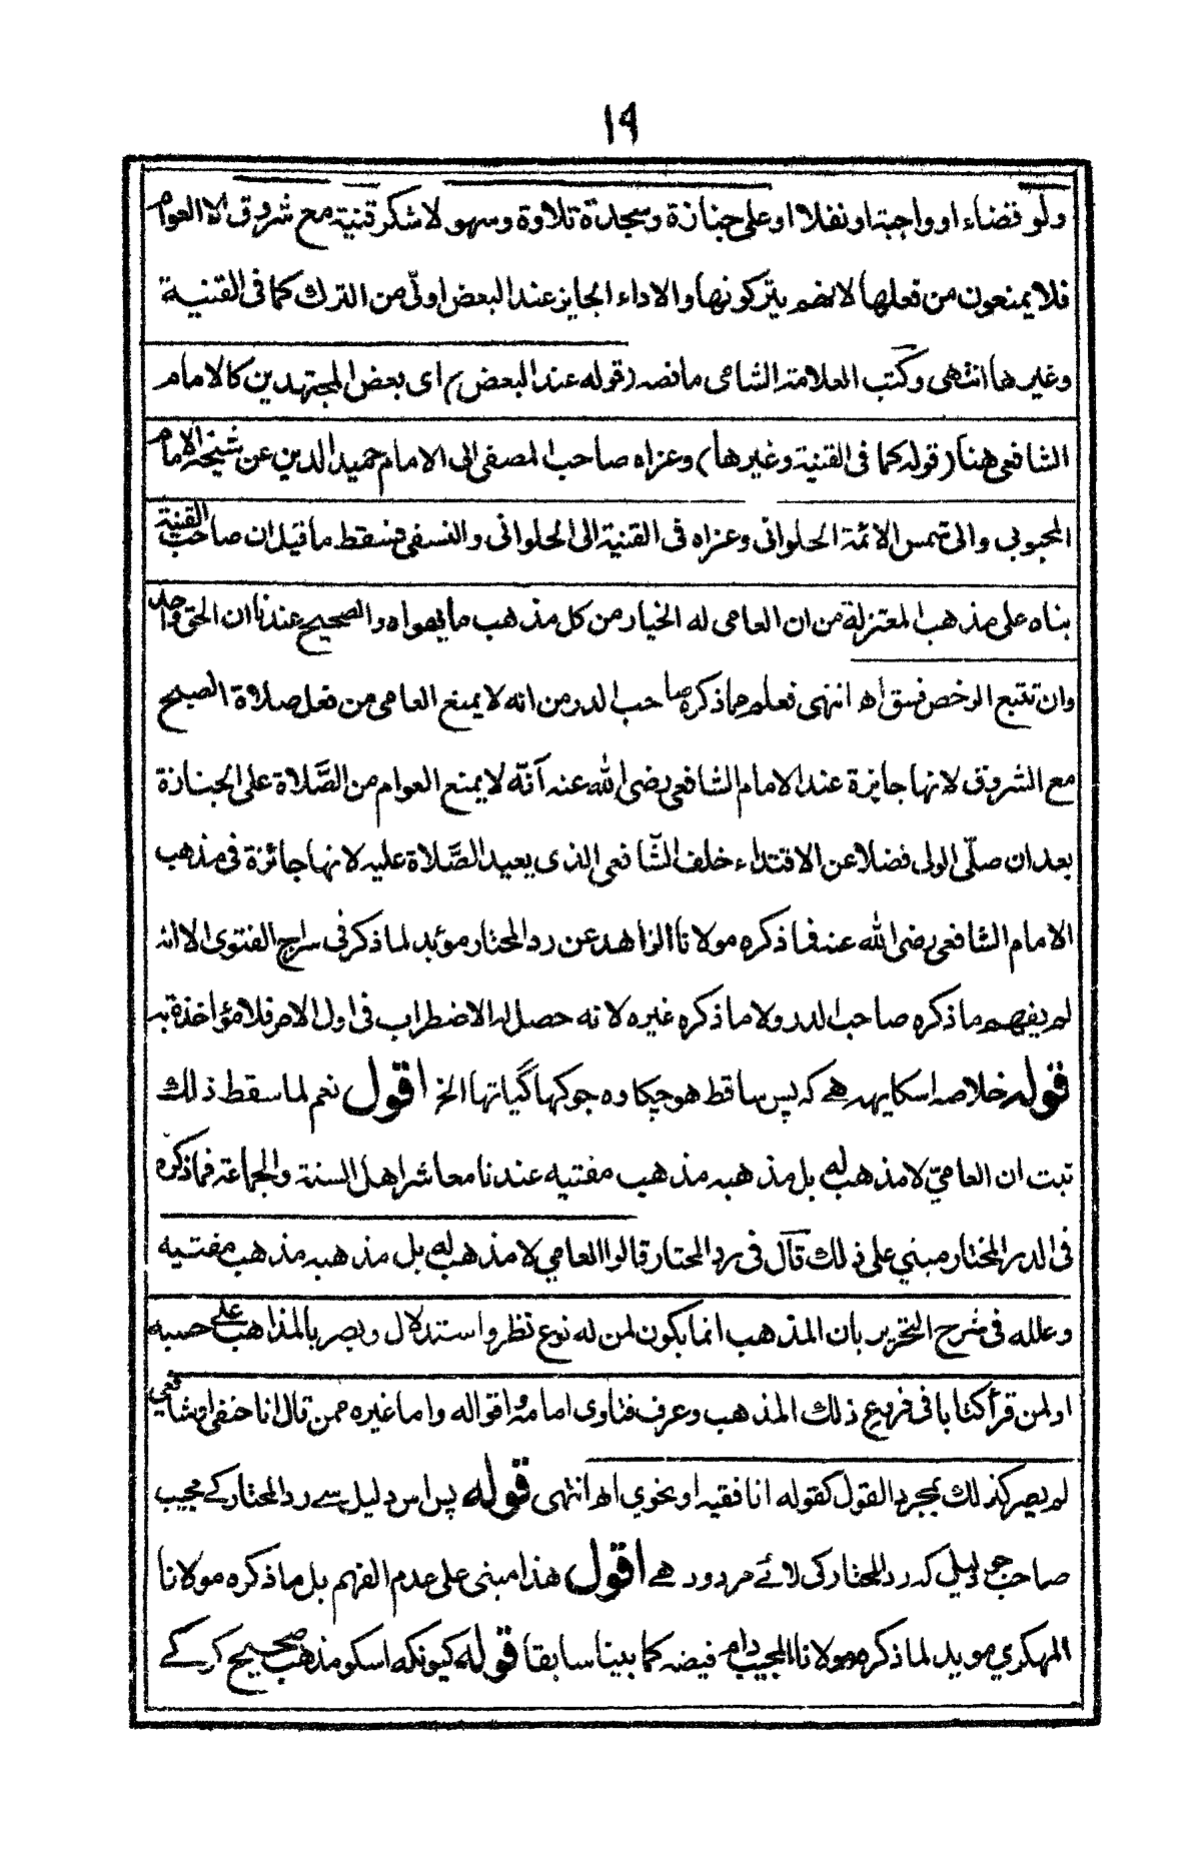 ١٩
ولو قضاء او واجبة او نفلا او على جنازة وسجدة تلاوة وسهو لا شكر قنية مع شروق الا العوام
فلا يمنعون من فعلها لانهم يتركونها والاداء الجايز عند البعض اولى من الترك كما فى القنية
وغيرها انتهى وكتب العلامة الشامى ما نصه (قوله عند البعض) اى بعض المجتهدين كالامام
الشافعى هنا (قوله كما فى القنية وغيرها) وعزاه صاحب المصفى الى الامام حميد الدين عن شيخه الامام
المحبوبى والى شمس الائمة الحلوانى وعزاه فى القنية الى الحلوانى والنسفى فسقط ما قيل ان صاحب القنية
بناه على مذهب المعتزلة من ان العامى له الخيار من كل مذهب ما يهواه والصحيح عندنا ان الحق واحد
وان تتبع الرخص فسق اه انتهى فعلم مما ذكره صاحب الدر من انه لا يمنع العامى من فعل صلاة الصبح
مع الشروق لانها جايزة عند الامام الشافعى رضى الله عنه آنّه لا يمنع العوام من الصَّلاة على الجنازة
بعد ان صلّى الولى فضلا عن الاقتداء خلف الشّافعى الذى يعيد الصَّلاة عليه لانها جائزة فى مذهب
الامام الشافعى رضى الله عنه فما ذكره مولانا الزاهد عن رد المحتار مؤيد لما ذكر فى سراج الفتوى الا انه
لم يفهم ما ذكره صاحب الدر ولا ما ذكره غيره لانه حصل له الاضطراب فى اول الامر فلا مؤاخذة به
قوله خلاصه اسكا يهه هے كه پس ساقط هوچكا وه جو كها گيا تها الخ اقول نعم لما سقط ذلك
ثبت ان العامىّ لا مذهب له بل مذهبه مذهب مفتيه عندنا معاشر اهل السنة والجماعة فما ذكره
فى الدر المختار مبني على ذلك قال فى رد المحتار قالوا العامي لا مذهب له بل مذهبه مذهب مفتيه
وعلله فى شرح التحرير بان المذهب انما يكون لمن له نوع نظر واستدلال وبصر بالمذاهب على حسبه
او لمن قرأ كتابا فى فروع ذلك المذهب وعرف فتاوى امامه واقواله واما غيره ممن قال انا حنفى او شافعى
لم يصر كذلك بمجرد القول كقوله انا فقيه او نحوي اه انتهى قوله پس اس دليل سے رد المحتار كے مجيب
صاحب جو دليل كه رد المحتار كى لائے مردود هے اقول هذا مبنى على عدم الفهم بل ما ذكره مولانا
المهكري مويد لما ذكره مولانا المجيب دام فيضه كما بينا سابقا قوله كيونكه اسكو مذهب صحيح كركے